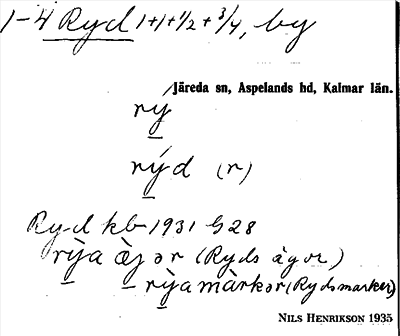 1-4 Ryd 1+1+1/2+3/4, by
Järeda sn, Aspelands hd, Kalmar län.
rý
rýd (r)
Ryd kb 1931 § 28
rỳa àjər (Ryds ägor)
rỳamàrkər (Rydsmarker)
NILS HENRIKSON 1935